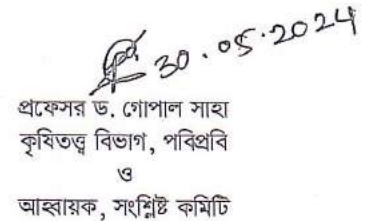 30.05.2024
প্রফেসর ড. গোপাল সাহা
কৃষিতত্ত্ব বিভাগ, পবিপ্রবি
ও
আহ্বায়ক, সংশ্লিষ্ট কমিটি